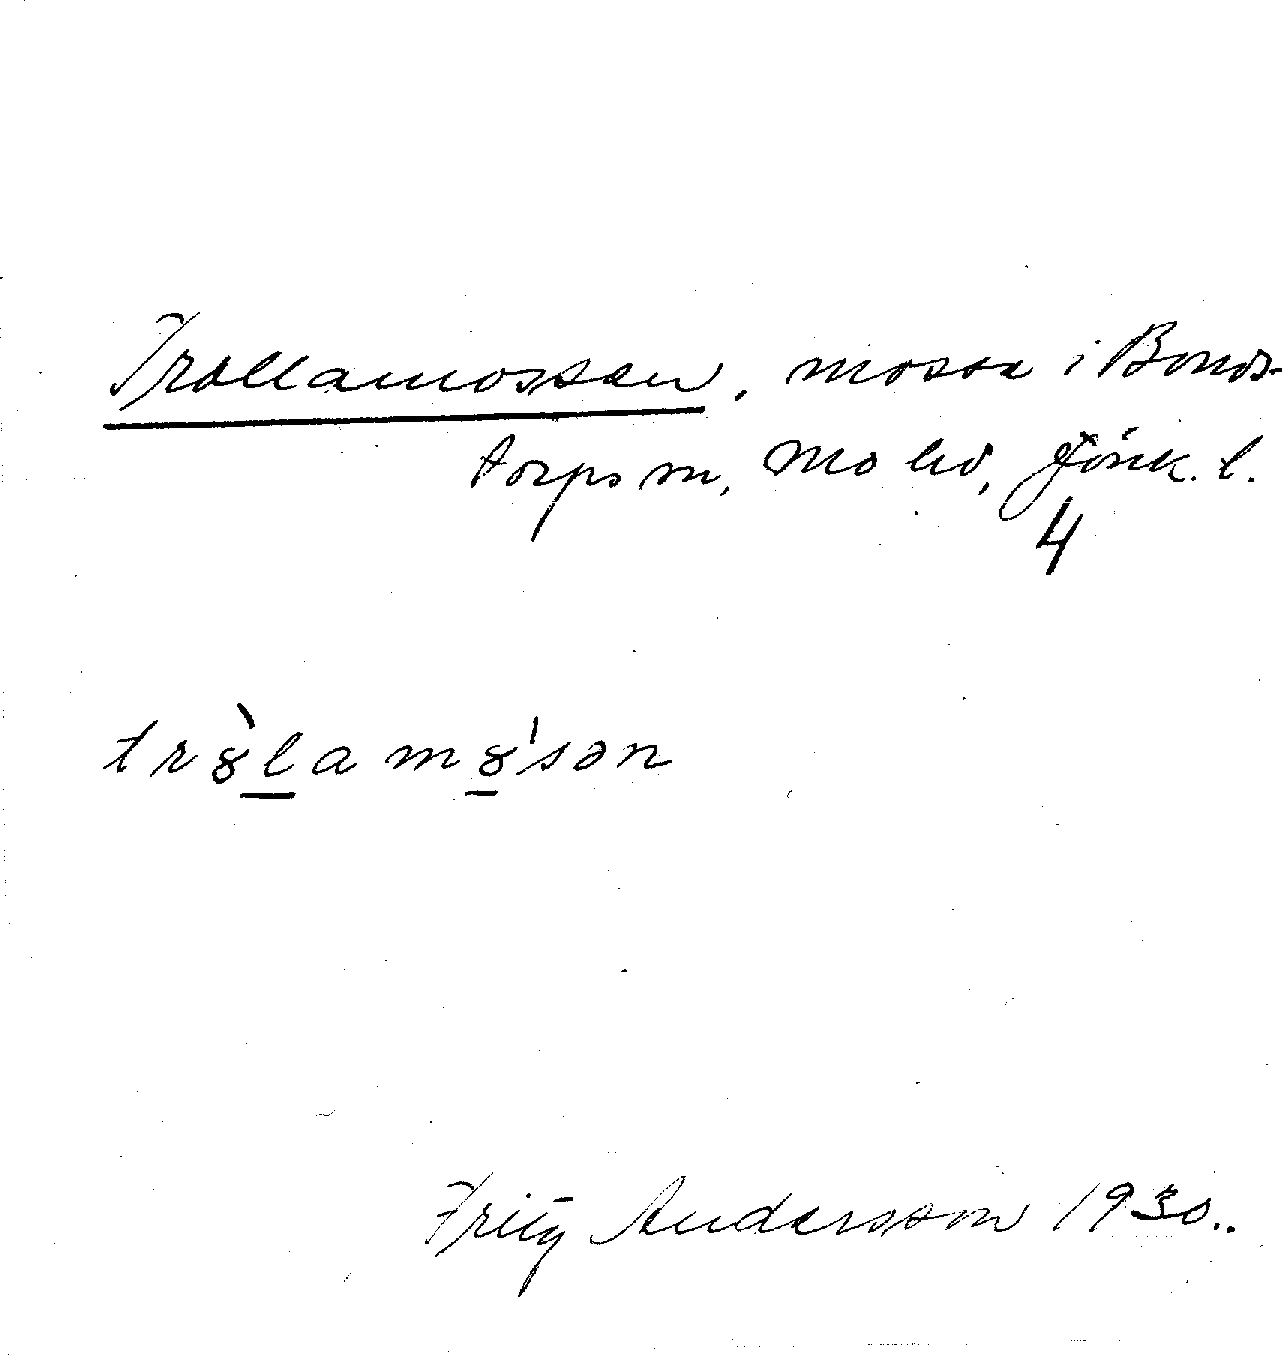 Trollamossen, mosse i Bonds-
torps sn, Mo hd, Jönk. l.
4
trȣ̀lamȣ'sən
Fritz Andersson 1930..